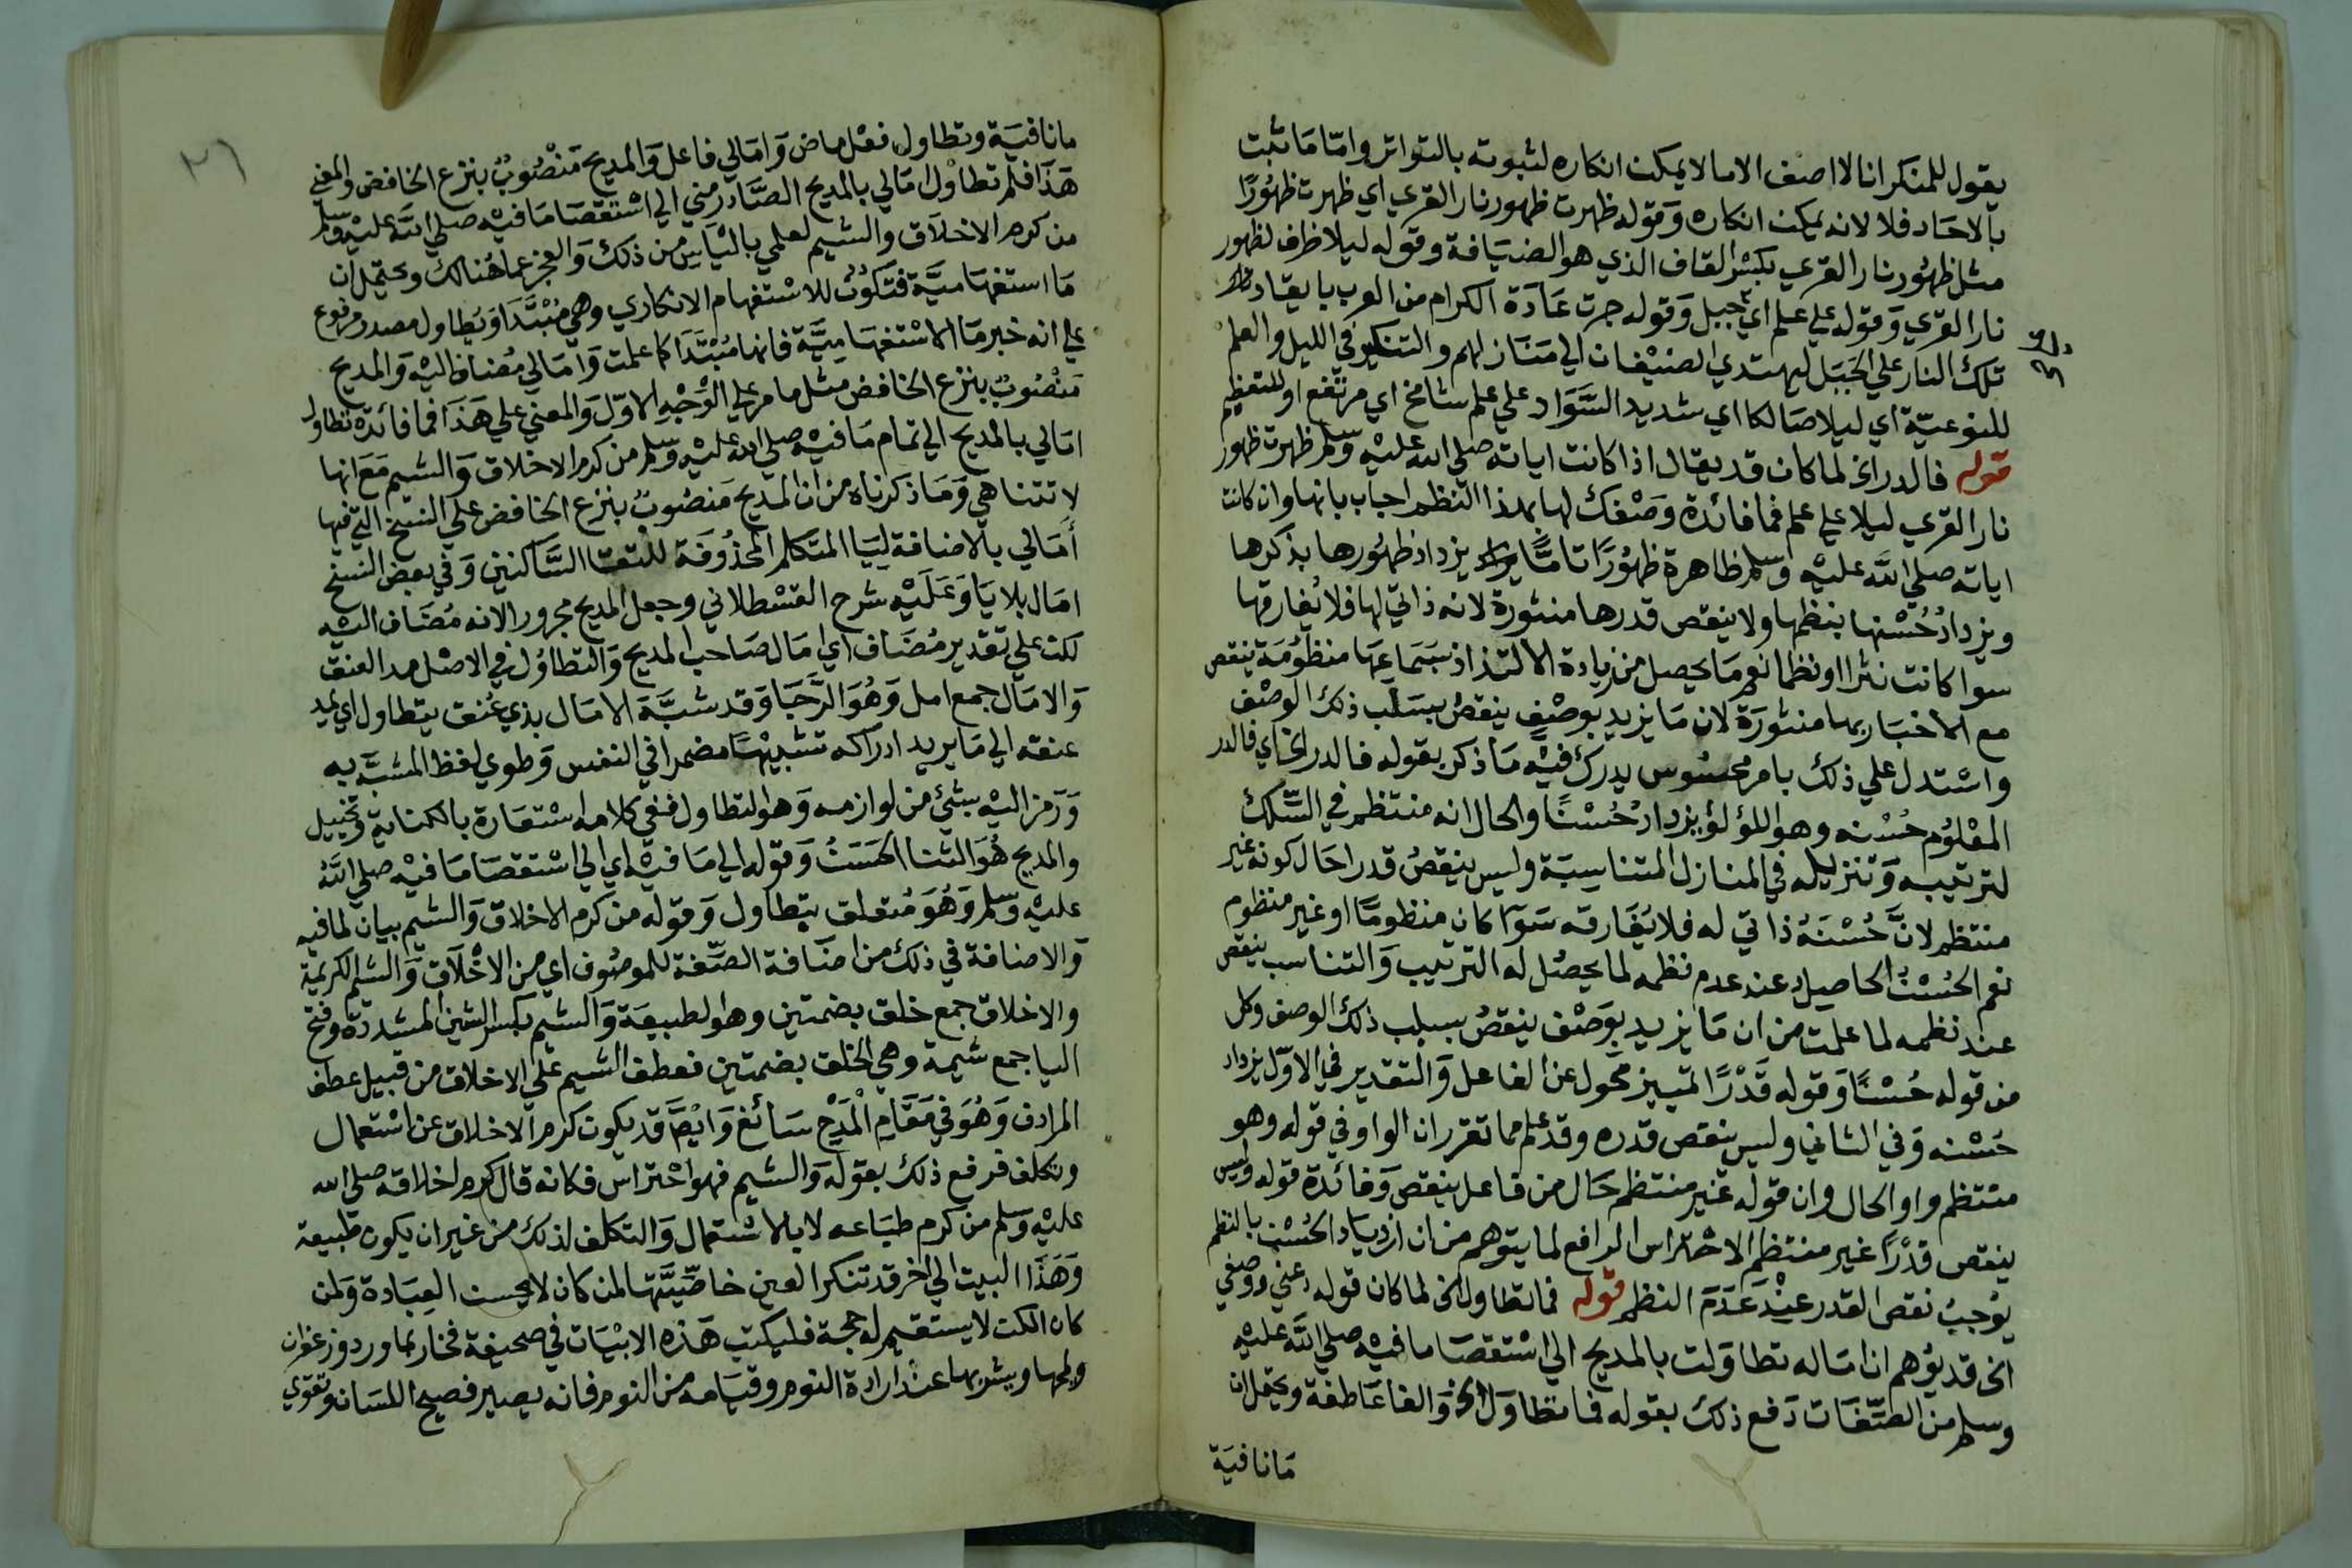 يقول للمنكر انا لا اصف الا ما لا يمكن انكاره لثبوته بالتواتر واما ما ثبت
بالاحاد فلا لانه يمكن انكاره وقوله ظهرت ظهور نار القري اي ظهرت ظهورا
مثل ظهور نار القري بكسر القاف الذي هو الضيافة وقوله ليلا ظرف لظهور
نار القري وقوله علي علم اي جبل وقوله جرت عادة الكرام من العرب بايقاد
تلك النار علي الجبل ليهتدي الضيفان الي منازلهم والتنكير في الليل والعلم
للنوعية اي ليلا حالكا اي شديد السواد علي علم شامخ اي مرتفع او للتعظيم
قوله فالدر الخ لما كان قد يقال اذا كانت اياته صلي الله عليه وسلم ظهرت ظهور
نار القري ليلا علي علم فما فائدة وصفك لها بهذا النظم اجاب بانها وان كانت
اياته صلي الله عليه وسلم ظاهرة ظهورا تاما يزداد ظهورها بذكرها
ويزداد حسنها بنظمها ولا ينقص قدرها منثورة لانه ذاتي لها فلا يفارقها
سوا كانت نثرا او نظما نعم ما يحصل من زيادة الالتذاذ بسماعها منظومة ينقص
مع الاخبار بها منثورة لان ما يزيد بوصف ينقص بسلب ذلك الوصف
واستدل علي ذلك بامر محسوس يدرك فيه ما ذكر بقوله فالدر الخ اي فالدر
المعلوم حسنه وهو اللؤلؤ يزداد حسنا والحال انه منتظم في السلك
لترتيبه وتنزيله في المنازل المتناسبة وليس ينقص قدرا حال كونه غير
منتظم لان حسنه ذاتي له فلا يفارقه سوا كان منظوما او غير منظوم
نعم الحسن الحاصل عند عدم نظمه لما يحصل له الترتيب والتناسب ينقص
عند نظمه لما علمت من ان ما يزيد بوصف ينقص بسلب ذلك الوصف وكل
من قوله حسنا وقوله قدرا تمييز محول عن الفاعل والتقدير في الاول يزداد
حسنه وفي الثاني وليس ينقص قدره وقد علم مما تقرر ان الواو في قوله وهو
منتظم واو الحال وان قوله غير منتظم حال من فاعل ينقص وفائدة قوله وليس
ينقص قدرا غير منتظم الاحتراس الدافع لما يتوهم من ان ازدياد الحسن بالنظم
يوجب نقص القدر عند عدم النظم قوله فما تطاول الخ لما كان قوله دعني ووصفي
الخ قد يوهم ان اماله تطاولت بالمديح الي استقصا ما فيه صلي الله عليه
وسلم من الصفات دفع ذلك بقوله فما تطاول الخ والفا عاطفة ويحتمل ان
مانافية
٣٦
مانافية وتطاول فعل ماض وامالي فاعل والمديح منصوب بنزع الخافض والمعني
هذا فلم تطاول امالي بالمديح الصادر مني الي استقصا ما فيه صلي الله عليه وسلم
من كرم الاخلاق والشيم لعلمي بالياس من ذلك والعجز عما هنالك ويحتمل ان
ما استفهامية فتكون للاستفهام الانكاري وهي مبتدا وتطاول مصدر مرفوع
علي انه خبر ما الاستفهامية فانها مبتدا كما علمت وامالي مضاف اليه والمديح
منصوب بنزع الخافض مثل ما مر علي الوجه الاول والمعني علي هذا فما فائدة تطاول
امالي بالمديح الي تمام ما فيه صلي الله عليه وسلم من كرم الاخلاق والشيم مع انها
لا تتناهي وما ذكرناه من ان المديح منصوب بنزع الخافض علي النسخ التي فيها
أمالي بالاضافة لييا المتكلم المحذوفة للتقا الساكنين وفي بعض النسخ
امال بلا يا وعليه شرح القسطلاني وجعل المديح مجرورا لانه مضاف اليه
لكن علي تقدير مضاف اي امال صاحب المديح والتطاول في الاصل مد العنق
والامال جمع امل وهو الرجا وقد شبه الامال بذي عنق يتطاول اي يمد
عنقه الي ما يريد ادراكه تشبيها مضمرا في النفس وطوي لفظ المشبه به
ورمز اليه بشئ من لوازمه وهو التطاول ففي كلامه استعارة بالكناية وتخييل
والمديح هو الثنا الحسن وقوله الي ما فيه اي الي استقصا ما فيه صلي الله
عليه وسلم وهو متعلق بتطاول وقوله من كرم الاخلاق والشيم بيان لما فيه
والاضافة في ذلك من اضافة الصفة للموصوف اي من الاخلاق والشيم الكريمة
والاخلاق جمع خلق بضمتين وهو الطبيعة والشيم بكسر الشين المشددة وفتح
اليا جمع شيمة وهي الخلق بضمتين فعطف الشيم علي الاخلاق من قبيل عطف
المرادف وهو في مقام المدح سائغ وايضا قد يكون كرم الاخلاق عن استعمال
وتكلف فرفع ذلك بقوله والشيم فهو احتراس فكانه قال كرم اخلاقه صلي الله
عليه وسلم من كرم طباعه لا بالاستعمال والتكلف لذلك من غير ان يكون طبيعة
وهذا البيت الي اخر قد تنكر العين خاصيتها لمن كان لا يحسن العبادة ولمن
كان الكن لا يستقيم له حجة فليكتب هذه الابيات في صحيفة فخار بماورد وزعفران
ويمحها ويشربها عند ارادة النوم وقيامه من النوم فانه يصير فصيح اللسان وتقوي